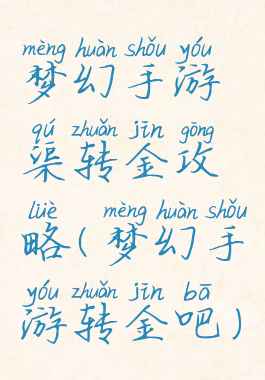 mèng huàn shǒu yóu
梦幻手游
qú zhuǎn jīn gōng
渠转金攻
lüè mèng huàn shǒu
略(梦幻手
yóu zhuǎn jīn bā
游转金吧)